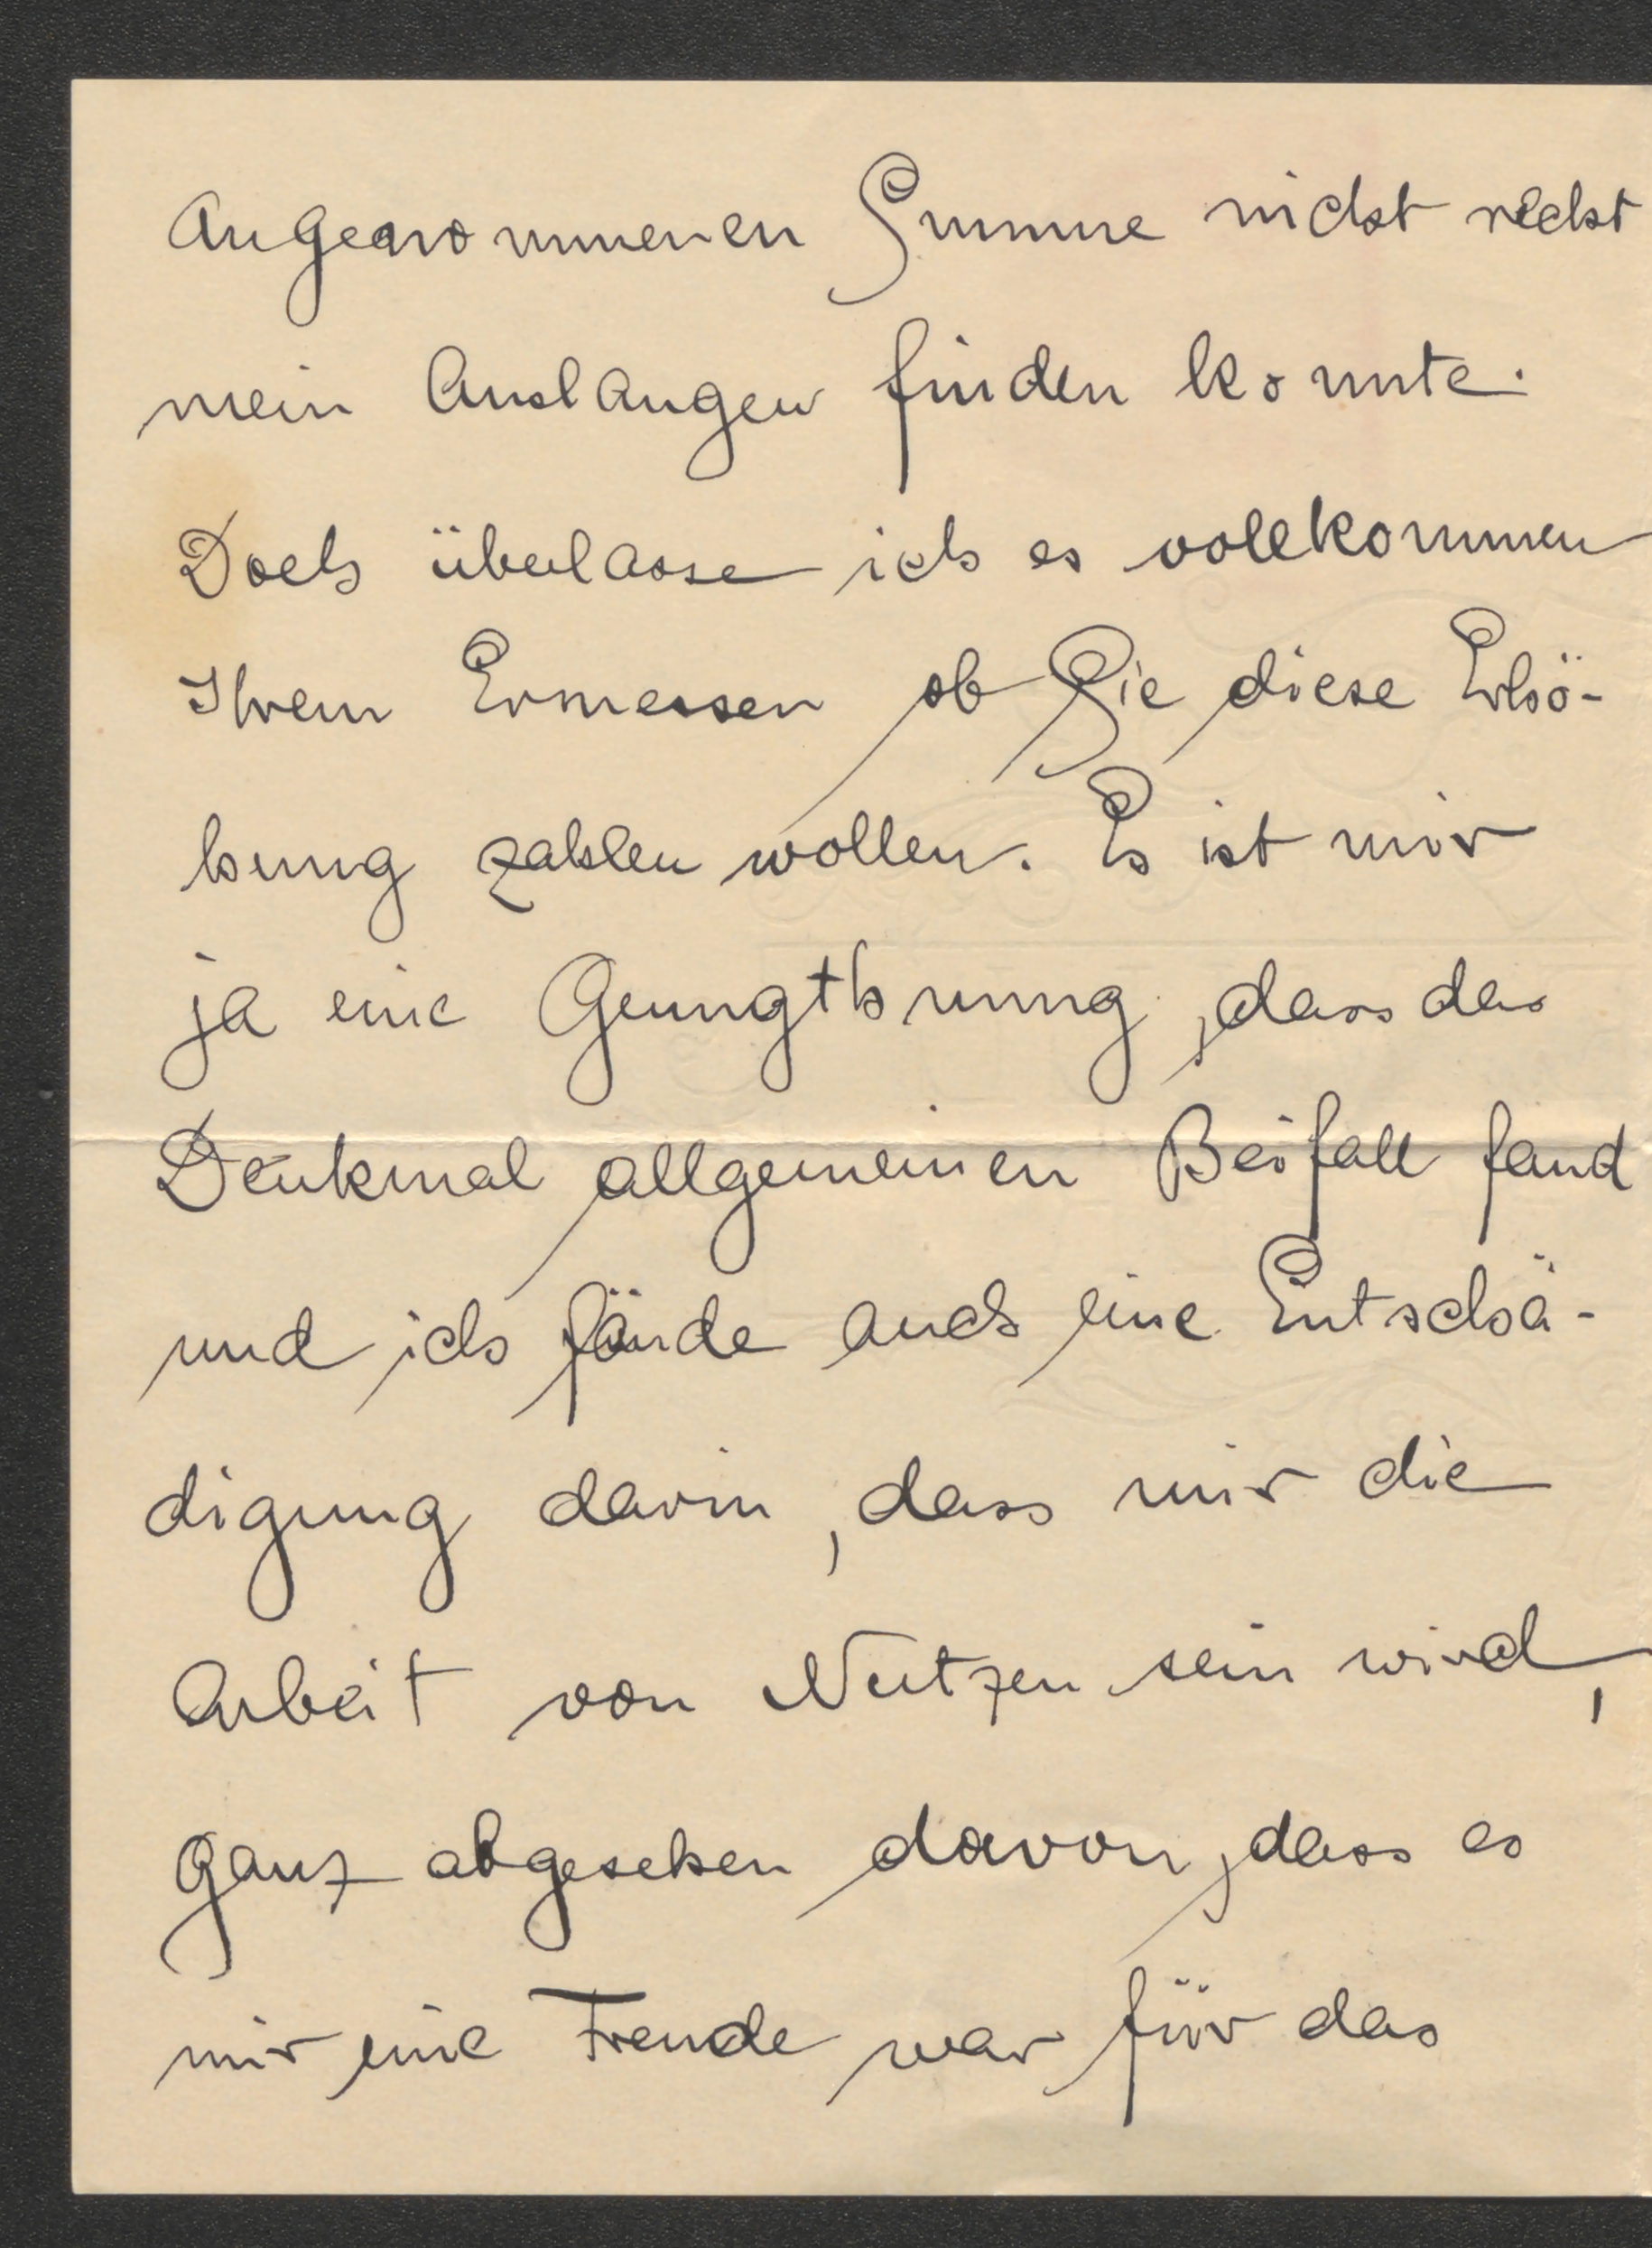 angenommenen Summe nicht recht
mein Auslangen finden konnte.
Doch überlasse ich es vollkommen
Ihrem Ermessen ob Sie diese Erhö-
hung zahlen wollen. Es ist mir
ja eine Genungthuung, dass das
Denkmal allgemeinen Beifall fand
und ich fände auch eine Entschä-
digung darin, dass mir die
Arbeit von Nutzen sein wird,
ganz abgesehen davon, dass es
mir eine Freude war für das